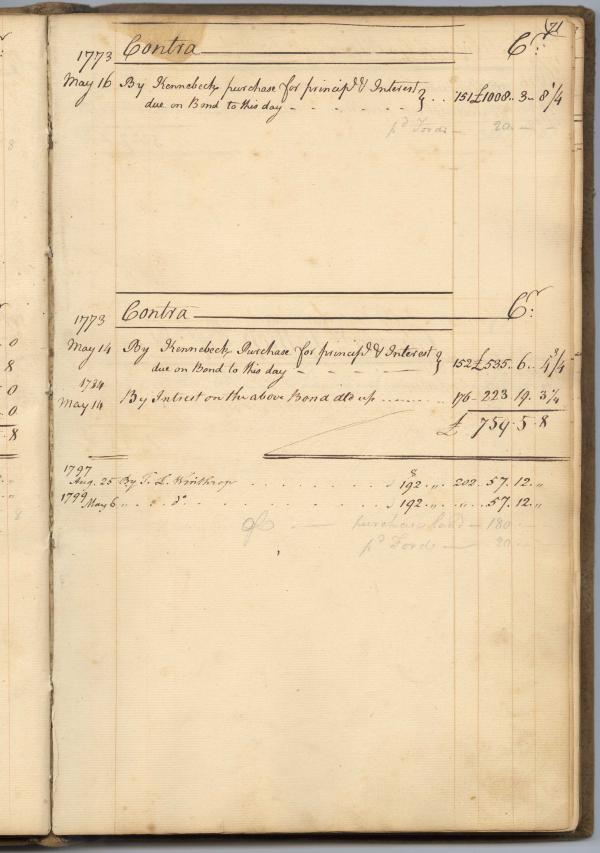 71
1773 Contra Cr.
May 16 By Kennebeck purchase for principl & Interest
due on Bond to this day - - - - - - 151 £1008.. 3.. 8 1/4
pd Fords - 20 - -
1773 Contra Cr.
May 14 By Kennebeck Purchase for principl & Interest
due on Bond to this day - - - - - 152 £535.. 6.. 4 3/4
1784
May 14 By Intrest on the above Bond dld up ...... 176 - 223 19. 3 1/4
£ 759.5.8
1797
Aug. 25 By T. L. Winthrop . . . . . . $ 192 .. 202. 57. 12. "
1799 May 6 " . . do . . . . . . $ 192 .. " .. 57. 12. "
purchase land - 180 -
pd Fords - 20 -
0
8
0
0
8